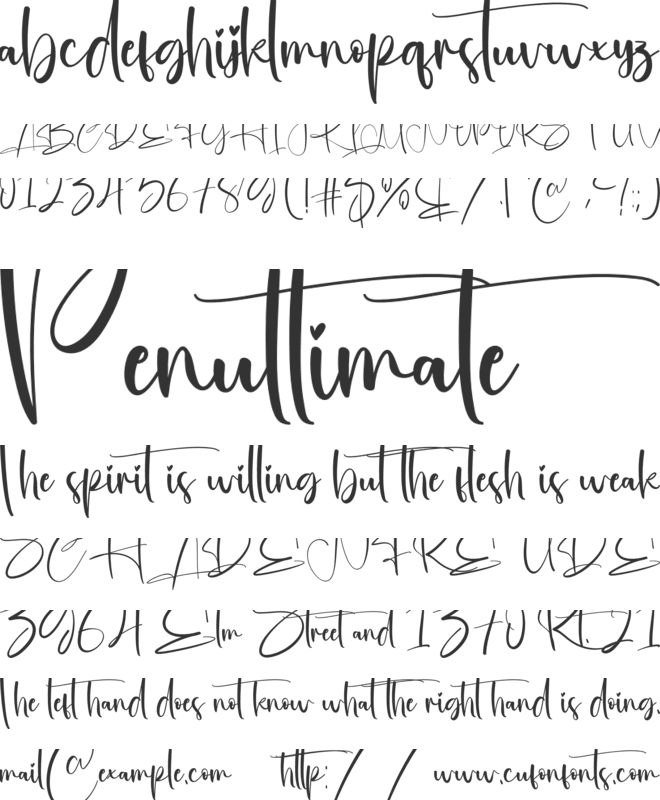 abcdefghijklmnopqrstuvwxyz
ABCDEFGHIJKLMNOPQRSTUV
0123456789(!#$%&/\|@,-?!:;)
Penultimate
The spirit is willing but the flesh is weak
SCHADENFREUDE
3964 Elm Street and 1370 Rt. 21
The left hand does not know what the right hand is doing.
mail@example.com http:// www.cufonfonts.com